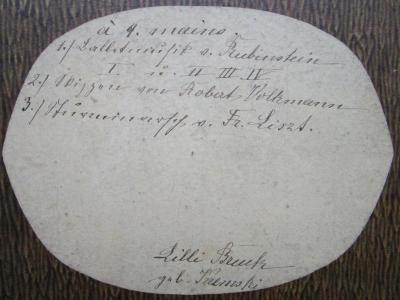 à 4. mains.
1.) Balletmusik v. Rubinstein
I. u. II III. IV.
2.) Skizzen von Robert Volkmann
3.) Sturmmarsch v. Fr. Liszt.
Lilli
geb.